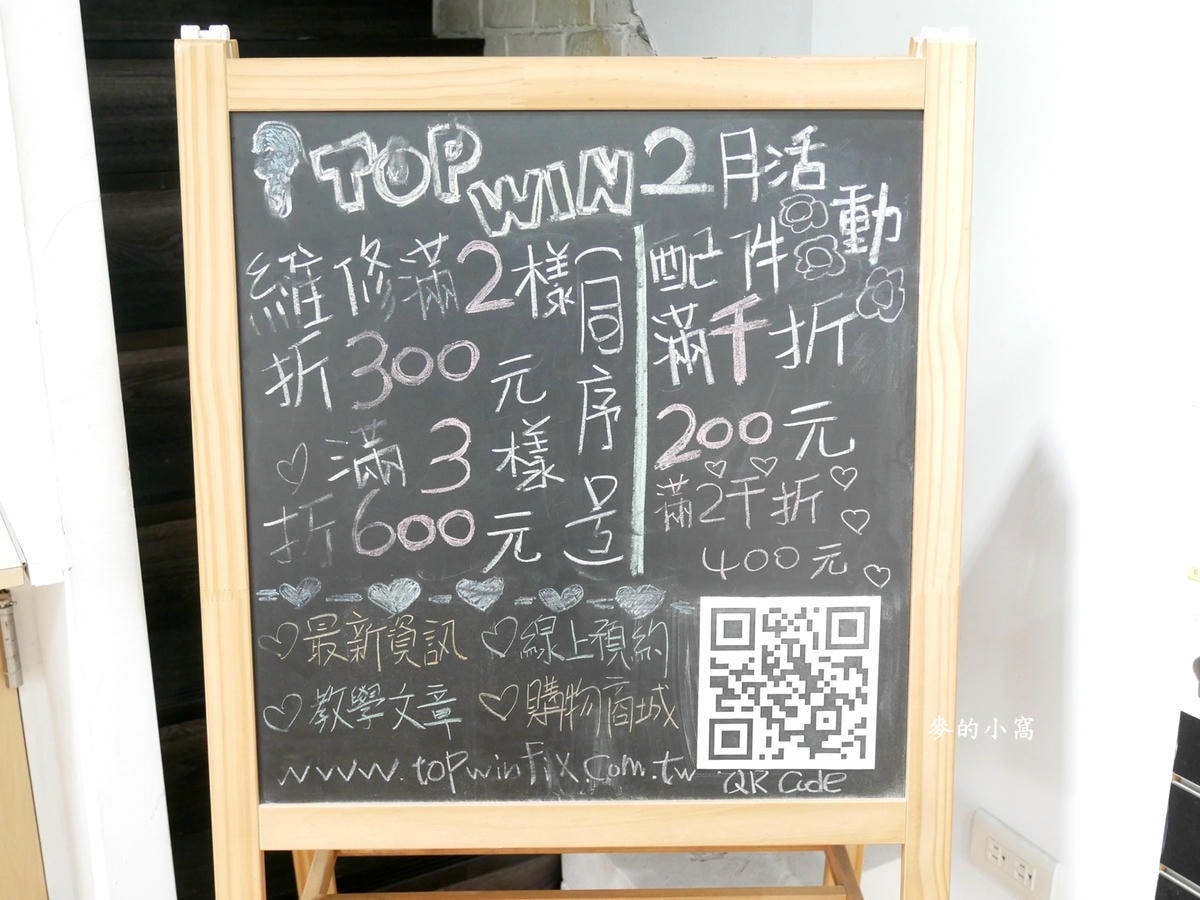 TOP WIN 2月活動
維修滿2樣
折300元
滿3樣
折600元
(同序号)
配件
滿千折
200元
滿2千折
400元
最新資訊 線上預約
教學文章 購物商城
www.topwinfix.com.tw
QR Code
麥的小窩